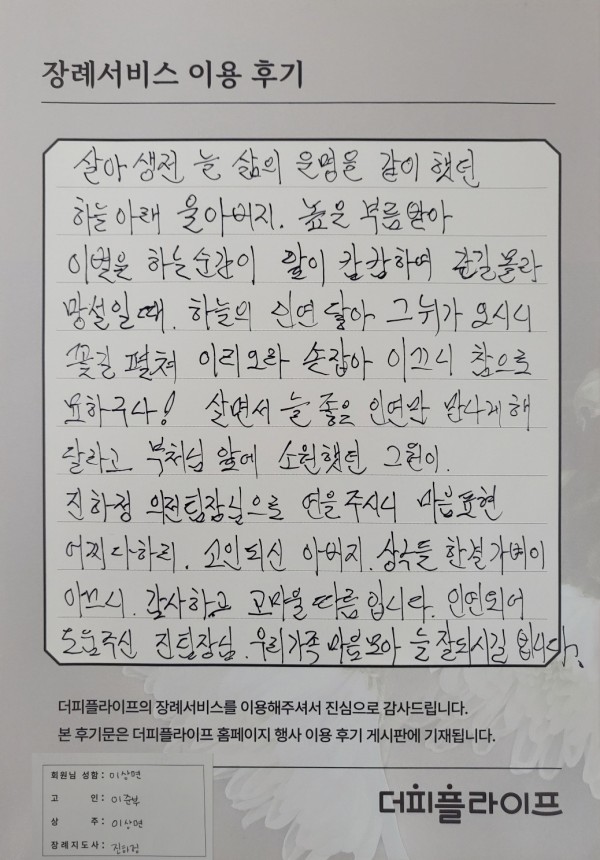 장례서비스 이용 후기
살아생전 늘 삶의 운명을 같이 했던
하늘아래 울아버지. 높은 부름받아
이별을 하늘순간이 앞이 캄캄하여 갈길몰라
망설일때. 하늘의 인연 닿아 그뉘가 오시니
꽃길 펼쳐 이리오라 손잡아 이끄니 참으로
묘하구나! 살면서 늘 좋은 인연만 만나게 해
달라고 부처님 앞에 소원했던 그원이.
진하정 의전팀장님으로 연을주시니 마음표현
어찌다하리. 고인되신 아버지. 상주들 한결가벼이
이끄시. 감사하고 고마울따름 입니다. 인연되어
도움주신 진팀장님. 우리가족 마음모아 늘 잘되시길 빕니다.
더피플라이프의 장례서비스를 이용해주셔서 진심으로 감사드립니다.
본 후기문은 더피플라이프 홈페이지 행사 이용 후기 게시판에 기재됩니다.
회원님 성함 : 이상면
고 인 : 이준부
상 주 : 이상면
장례지도사 : 진하정
더피플라이프